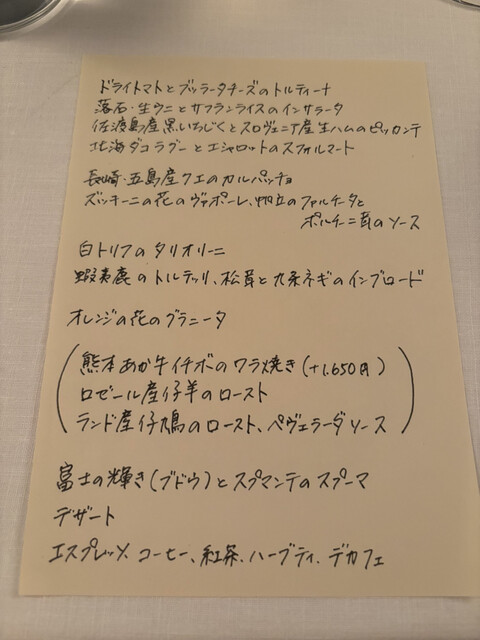 ドライトマトとブッラータチーズのトルティーナ
落石・生ウニとサフランライスのインサラータ
佐渡島産黒いちじくとスロヴェニア産生ハムのピッカンテ
北海ダコラグーとエシャロットのスフォルマート
長崎・五島産クエのカルパッチョ
ズッキーニの花のヴァポーレ、帆立のファルチータと
ポルチーニ茸のソース
白トリフのタリオリーニ
蝦夷鹿のトルテッリ、松茸と九条ネギのインブロード
オレンジの花のグラニータ
熊本あか牛イチボのワラ焼き(+1.650円)
ロゼール産仔羊のロースト
ランド産仔鳩のロースト、ペヴェラーダソース
富士の輝き(ブドウ)とスプマンテのスプーマ
デザート
エスプレッソ、コーヒー、紅茶、ハーブティ、デカフェ